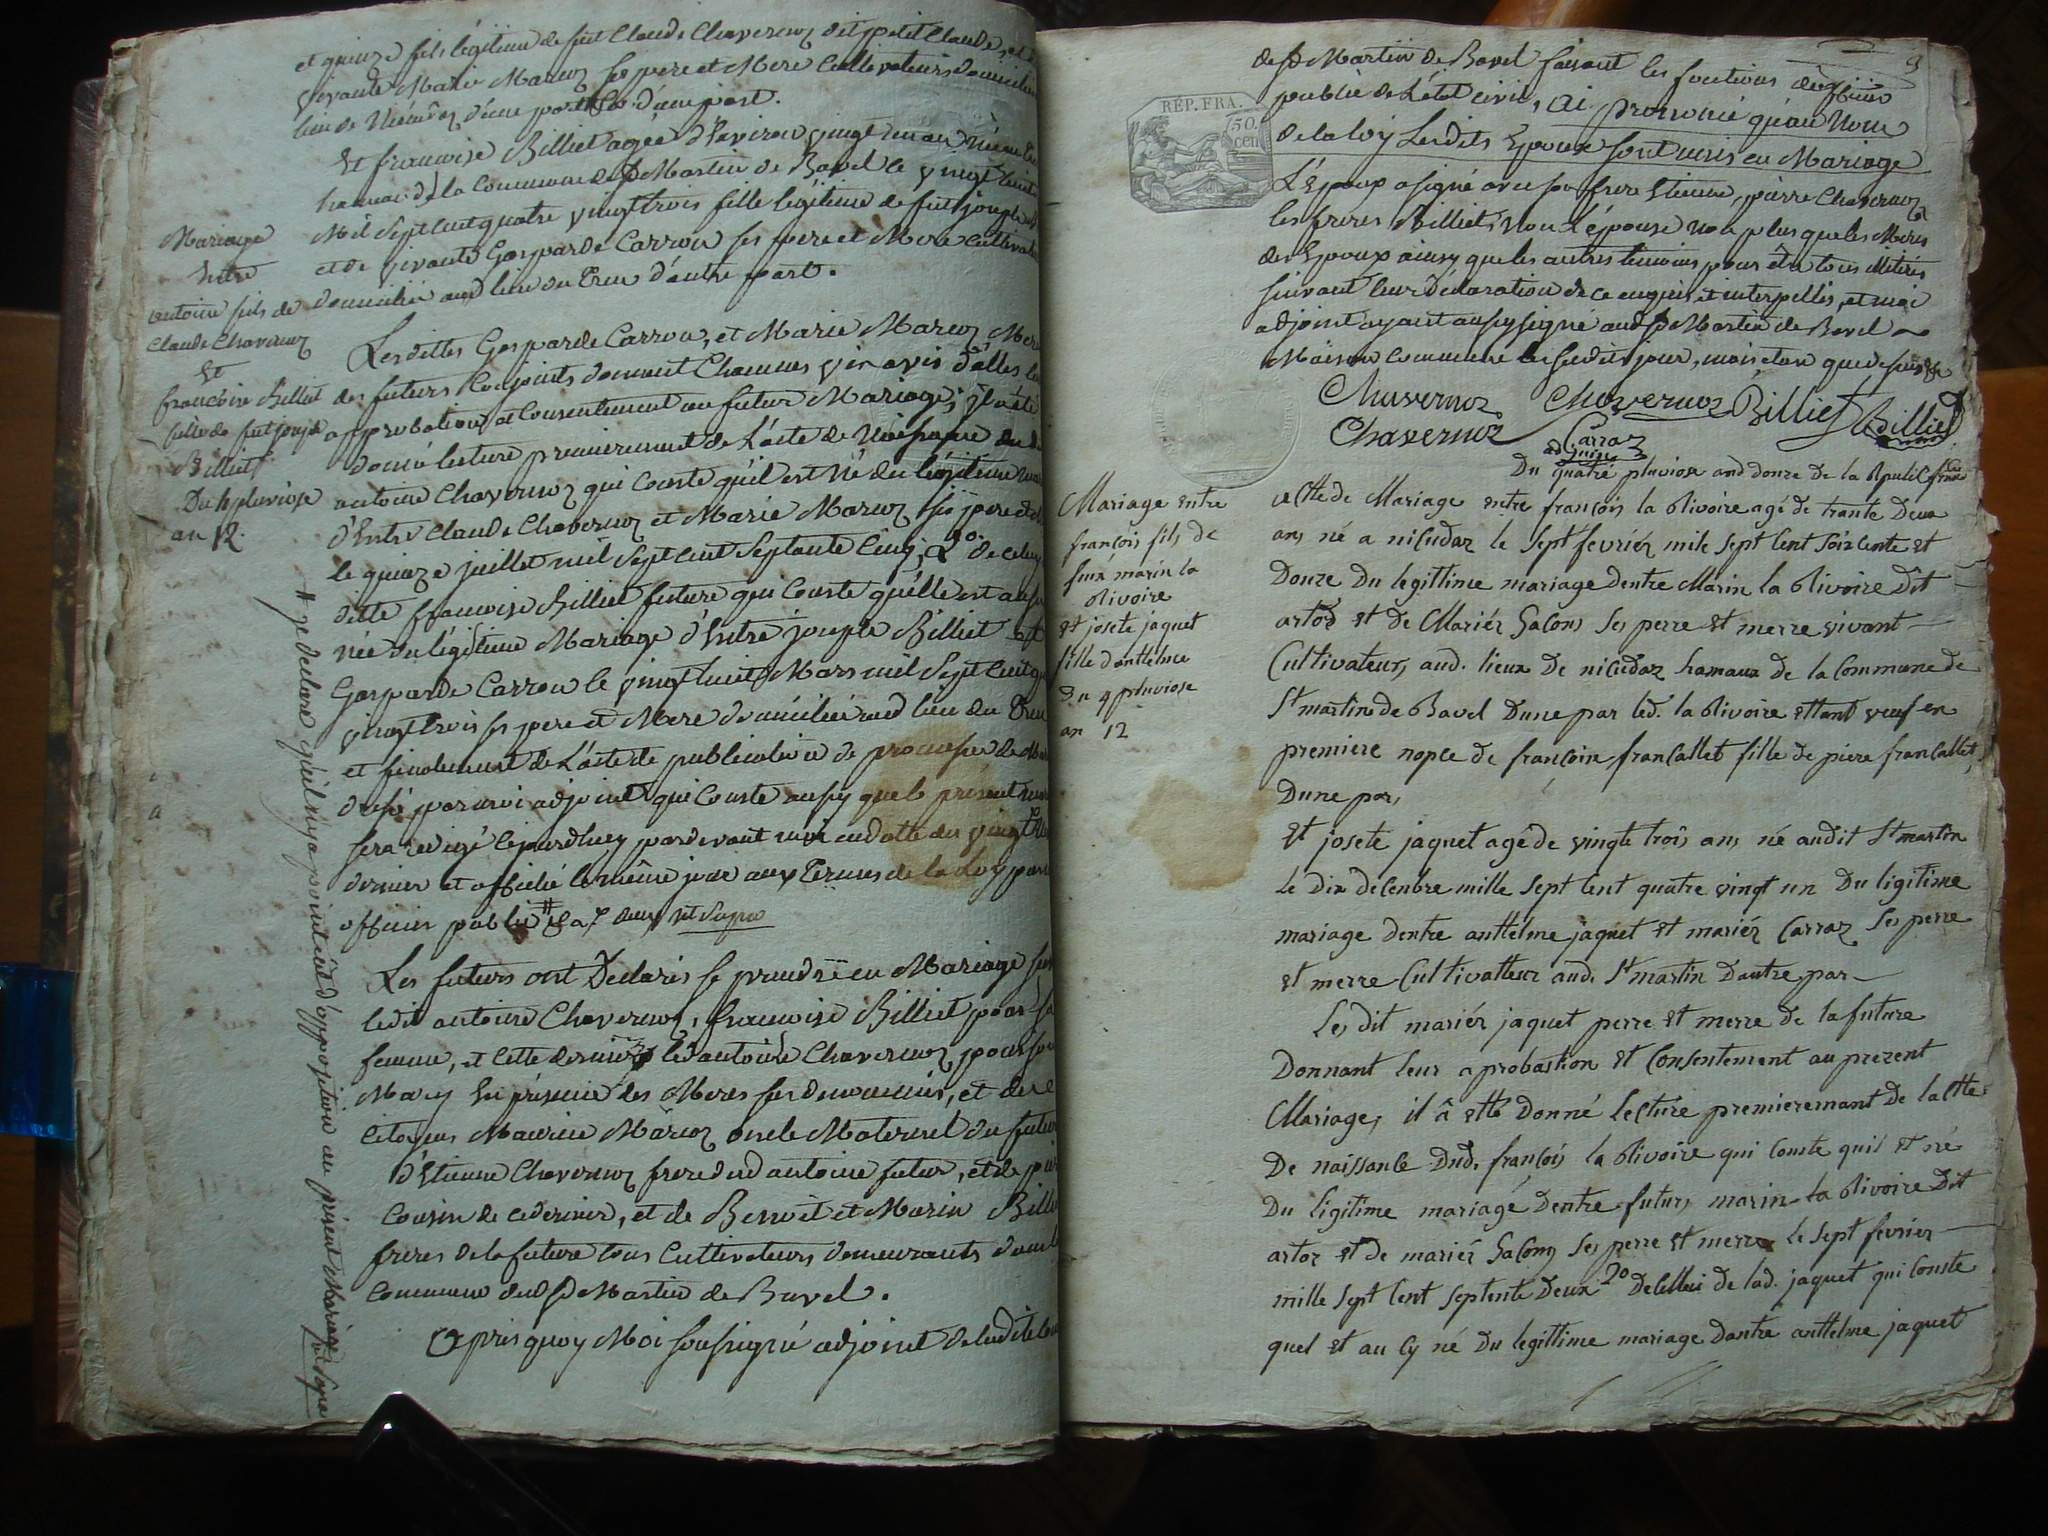 et quinze fils légitime de feüt Claude Chavernoz dit petit Claude, et de
vivante Marie Marcoz ses pere et Mere Cultivateurs domicilies
lieu de d'une part.
Et francoise Billiet agée d'Environ vingt un an Née au Truc
hameau de la Commune de St Martin de Bavel le vingt huit
Mil Sept cent quatre vingt trois fille légitime de feüt joseph
et de vivante Gasparde Carron ses pere et Mere Cultivat
domiciliée aud lieu du Truc d'autre part.
Mariage
Entre
antoine fils de
Claude Chavernoz
Et
francoise Billiet
fille de feüt joseph
Billiet
Du 4 pluviose
an 12.
Lesdittes Gasparde Carron, et Marie Marcoz Mere
des futurs Conjoints donnent Chacunes vin avis d'Elles
approbation et Consentement au futur Mariage; jl a été
donné lecture premierement de L'acte de Naissance du
antoine Chavernoz qui Conste qu'il est Né du légitime
d'Entre Claude Chavernoz et Marie Marcoz ses pere et
le quinze juillet mil Sept cent Septante Cinq, 2o. de celuy
ditte francoise Billiet future qui Conste qu'elle est aussy
née du légitime Mariage d'Entre joseph Billiet et
Gasparde Carron le vingt huit Mars mil Sept Cent
vingt trois ses pere et Mere domiciliés aud lieu du Truc
et finalement de L'acte de publication de promesse de
dressé par moi adjoint qui Conste aussy que le présent
sera redigé cejourdhuy pardevant moi en datte du vingt
dernier et affiché le même jour aux Termes de la Loy par
officier public #
# je declare qu'il n'y a point eüt d'opposition au présent Mariage
Les futurs ont Declarés se prendre en Mariage
ledit antoine Chavernoz, francoise Billiet pour sa
femme, et Cette derniere led antoine Chavernoz pour son
Mary En présence des Meres sus denommées, et des
Citoyens Maurice Marcoz oncle Maternel du futur
d'Etienne Chavernoz frere dud antoine futur, et de
Cousin de ce dernier, et de Benoit et Marin Billiet
freres de la future tous Cultivateurs demeurants dans la
Commune dud St Martin de Bavel.
Apris quoy Moi soussigné adjoint de ladite
9
de St Martin de Bavel faisant les fonctions d'officier
public de L'état civil, ai prononcé qu'au Nom
de la loy Lesdits Epoux sont unis en Mariage
RÉP. FRA.
50.
cen
L'Epoux a signé avec son frere Etienne, pierre Chavernoz
les freres Billiet, Non L'épouse Non plus que les Meres
des Epoux ainsy que les autres temoins pour être tous illiterés
suivant leur déclaration de ce enquis et interpellés, et moi
adjoint ayant aussy signé aud St Martin de Bavel
Maison Commune les susdits jour, mois et an que dessus
Chavernoz Chavernoz Billiet Billiet
Chavernoz Carraz
adjoint
Du quatre pluviose and donze De la Republiq franc
Mariage entre
françois fils de
feux marin la
olivoire
Et josete jaquet
fille danttelme
Du 4 pluviose
an 12
actte de Mariage entre françois la olivoire agé de trante Deux
ans né a nicudaz le Sept fevriér mile sept cent soixcente Et
Douze Du legittime mariage dentre Marin la olivoire Dit
artoz Et de Mariéz Gacons Ses perre Et merre vivant
Cultivateurs aud. lieux De nicudaz hamaux de la Commune de
St martin de Bavel Dune par led. la olivoire ettant veuf en
premiere nopce de françoise françallet fille de piere françallet,
Dune par,
Et josete jaquet agé de vingte trois ans né audit St martin
Le Dix decenbre mille Sept Cent quatre vingt un Du ligitime
mariage dentre anttelme jaquet Et mariéz Carraz Ses perre
et merre Cultivatteur aud. St martin Dautre par
Les dit mariéz jaquet perre Et merre de la future
Donnant leur aprobastion Et Consentement au prezent
Mariage, il â etté Donné Lecture premieremant de lactte
De naissance Dud. françois la olivoire qui conste quil Et né
Du ligitime mariage Dentre futurs marin la olivoire Dit
artoz Et de mariéz Gacons Ses perre Et merre le sept fevrier
mille Sept Cent Septente Deux 2o Decelluie de lad. jaquet qui Conste
quel Et au Cy né Du legittime mariage Dantre anttelme jaquet